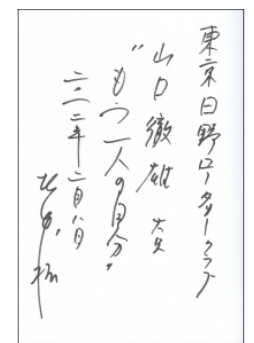 東京日野ロータリークラブ
山口徹雄
"もう一人の自分"
二〇一二年二月八日